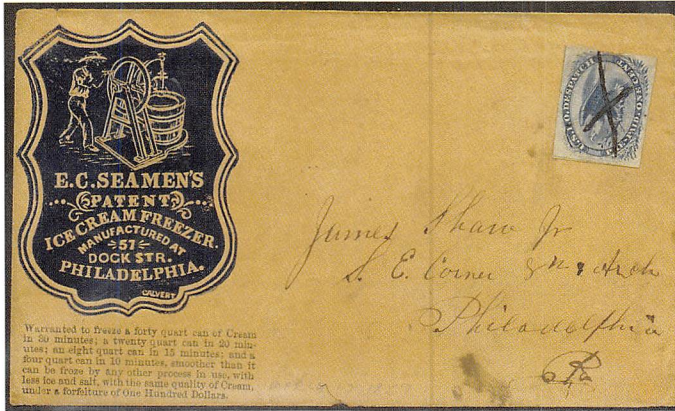 E.C. SEAMEN'S
PATENT
ICE CREAM FREEZER.
MANUFACTURED AT
57
DOCK STR.
PHILADELPHIA.
CALVERT
Warranted to freeze a forty quart can of Cream
in 30 minutes; a twenty quart can in 20 min-
utes; an eight quart can in 15 minutes; and a
four quart can in 10 minutes, smoother than it
can be froze by any other process in use, with
less ice and salt, with the same quality of Cream,
under a forfeiture of One Hundred Dollars.
U.S.P.O. DESPATCH
PRE-PAID ONE CENT
James Shaw Jr
S. E. Corner 8th & Arch
Philadelphia
Pa